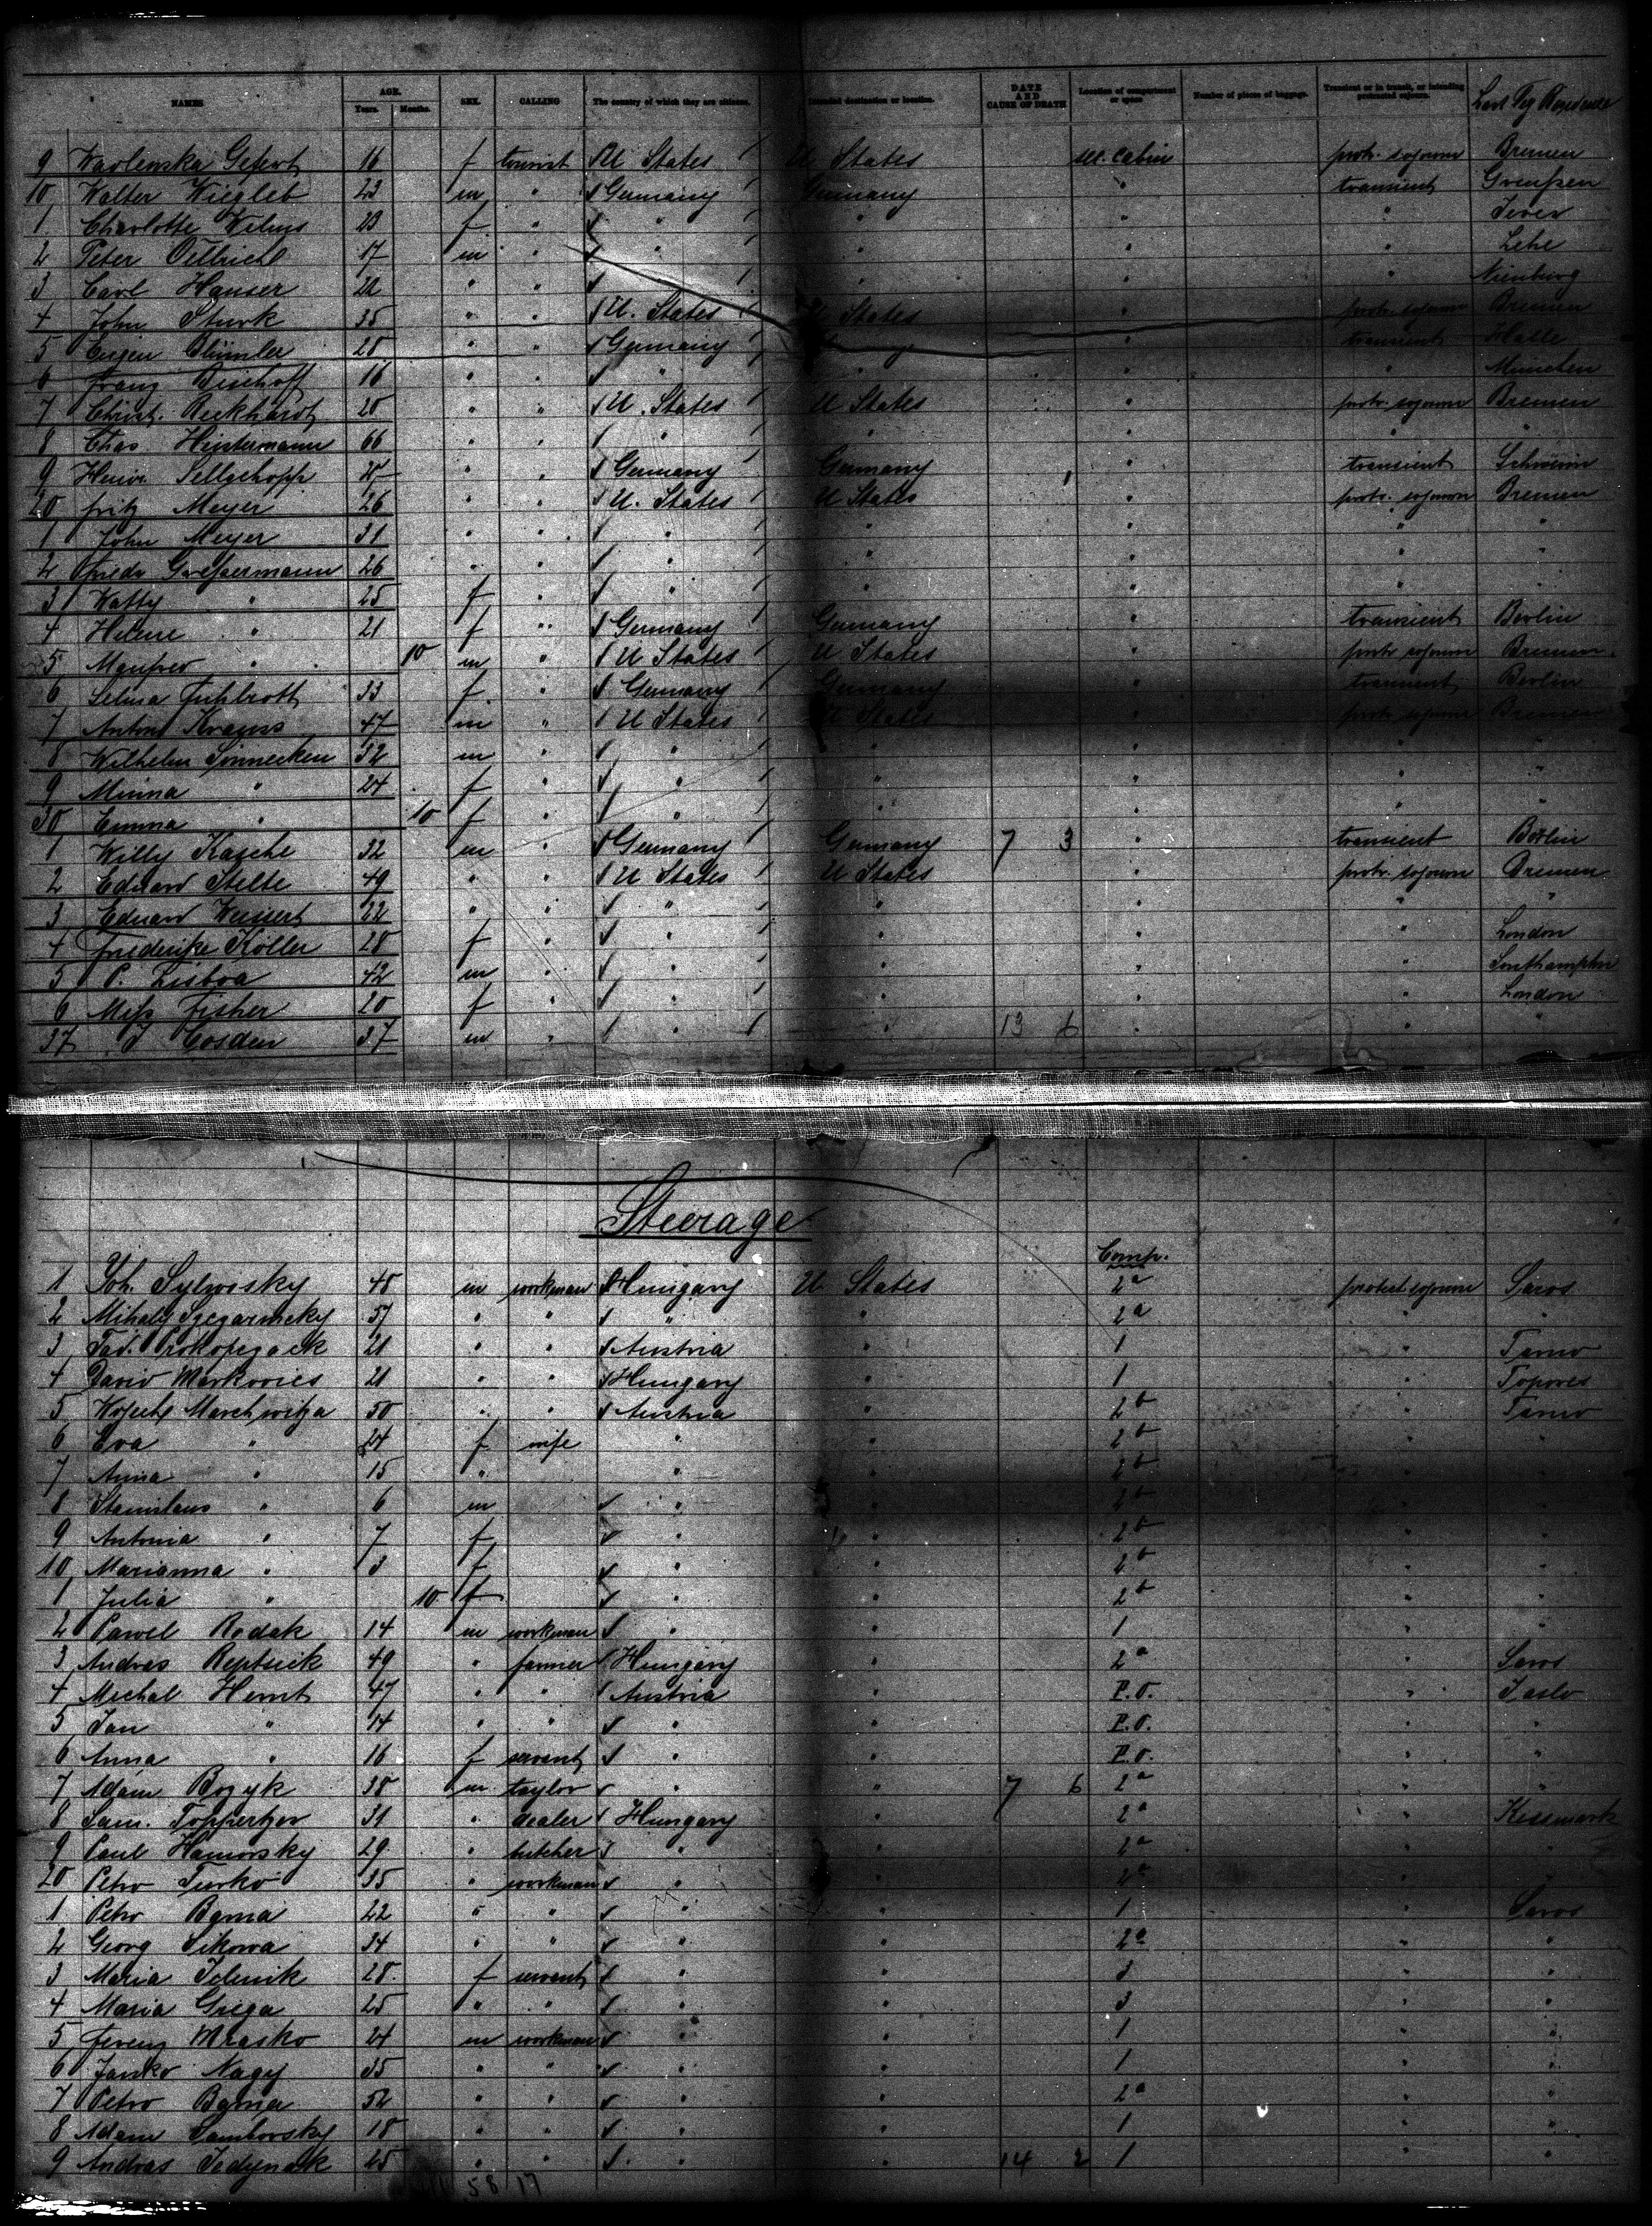 NAMES AGE. Years. Months. SEX. CALLING The country of which they are citizens. Intended destination or location. DATE AND CAUSE OF DEATH Location of compartment or space Number of pieces of baggage. Transient or in transit, or intending protracted sojourn. Last Leg Residence
9 16 f tourist U States U States sec. cabin protr. sojourn Bremen
10 Walter Wiegleb 23 m " Germany Germany " transient Greußen
1 Charlotte Wilms 23 f " " " " " Jever
2 Peter Oellrich 17 m " " " " " Lehe
3 Carl Hanser " " " " Nienburg
4 John Sturk 35 " " U. States U States " protr. sojourn Bremen
5 Eugen Blümler 28 " " Germany " transient Halle
6 Franz Bischoff 16 " " " " " " München
7 Christ. Reckhardt 28 " " U. States U States " protr. sojourn Bremen
8 Chas. Hintermann 66 " " " " " " "
9 Heinr. Sellschopp " " Germany Germany " transient Schwerin
20 Fritz Meyer 26 " " U. States U States " protr. sojourn Bremen
1 John Meyer 31 " " " " " " "
2 26 " " " " " "
3 " 25 f " " " "
4 Helene " 21 f " Germany Germany transient Berlin
5 Manfred " 10 m " U States U States protr. sojourn Bremen
6 Selma Fuhlrott 33 f " Germany Germany " transient Berlin
7 Anton Krams 47 m " U States U States " protr. sojourn Bremen
8 Wilhelm Sönnecken 32 m " " " " " "
9 Minna " 24 f " " " " " "
30 Emma " 10 f " " " " " "
1 Willy Kasche 32 m " Germany Germany 7 3 " transient Berlin
2 Eduard Stelte 49 " " U States U States " protr. sojourn Bremen
3 Eduard Weissert 22 " " " " " " "
4 Friederike Köller 28 f " " " " " London
5 P. Lisboa 42 m " " " " " Southampton
6 Miss Fisher 20 f " " " " " London
37 J Cosden 37 m " " " 13 6 " " "
Steerage
Comp.
1 Joh. 48 m workman Hungary U States 2a protract. sojourn Saros
2 Mihaly 57 " " " " 2a " "
3 21 " " Austria " 1 " Tarnow
4 David Markovics 21 " " Hungary " 1 "
5 50 " " Austria " 2b " Tarnow
6 Eva " 24 f wife " " 2b " "
7 Anna " 15 " " " 2b " "
8 Stanislaus " 6 m " " 2b " "
9 Antonia " 7 f " " 2b " "
10 Marianna " 3 f " " 2b " "
1 Julia " 10 f " " 2b " "
2 Pawel Rodak 14 m workman " " 1 " "
3 Andras 49 " farmer Hungary " 2a " Saros
4 Michal Hernt 47 " " Austria " P.O. " Jaslo
5 Jan " 14 " " " " P.O. " "
6 Anna " 16 f servant " " P.O. " "
7 Adam Bozyk 38 m taylor " " 7 6 2a " "
8 Sam. Toppertzer 31 " dealer Hungary " 2a " Kesmark
9 Paul Hamorsky 29 " butcher " " 2a " "
20 Petro Turko 35 " workman " " " "
1 Petro 22 " " " " 1 " Saros
2 Georg Sikora 34 " " " " 2a " "
3 Maria 28 f servant " " 3 " "
4 Maria Grega 25 " " " " 3 " "
5 Ferenz Mrasko 24 m workman " " 1 " "
6 Janko Nagy 35 " " " " 1 " "
7 Petro 52 " " " " 2a " "
8 Adam Sambovsky 18 " " " " 1 " "
9 Andras Jedynak 25 " " " " 14 2 1 " "
58 17